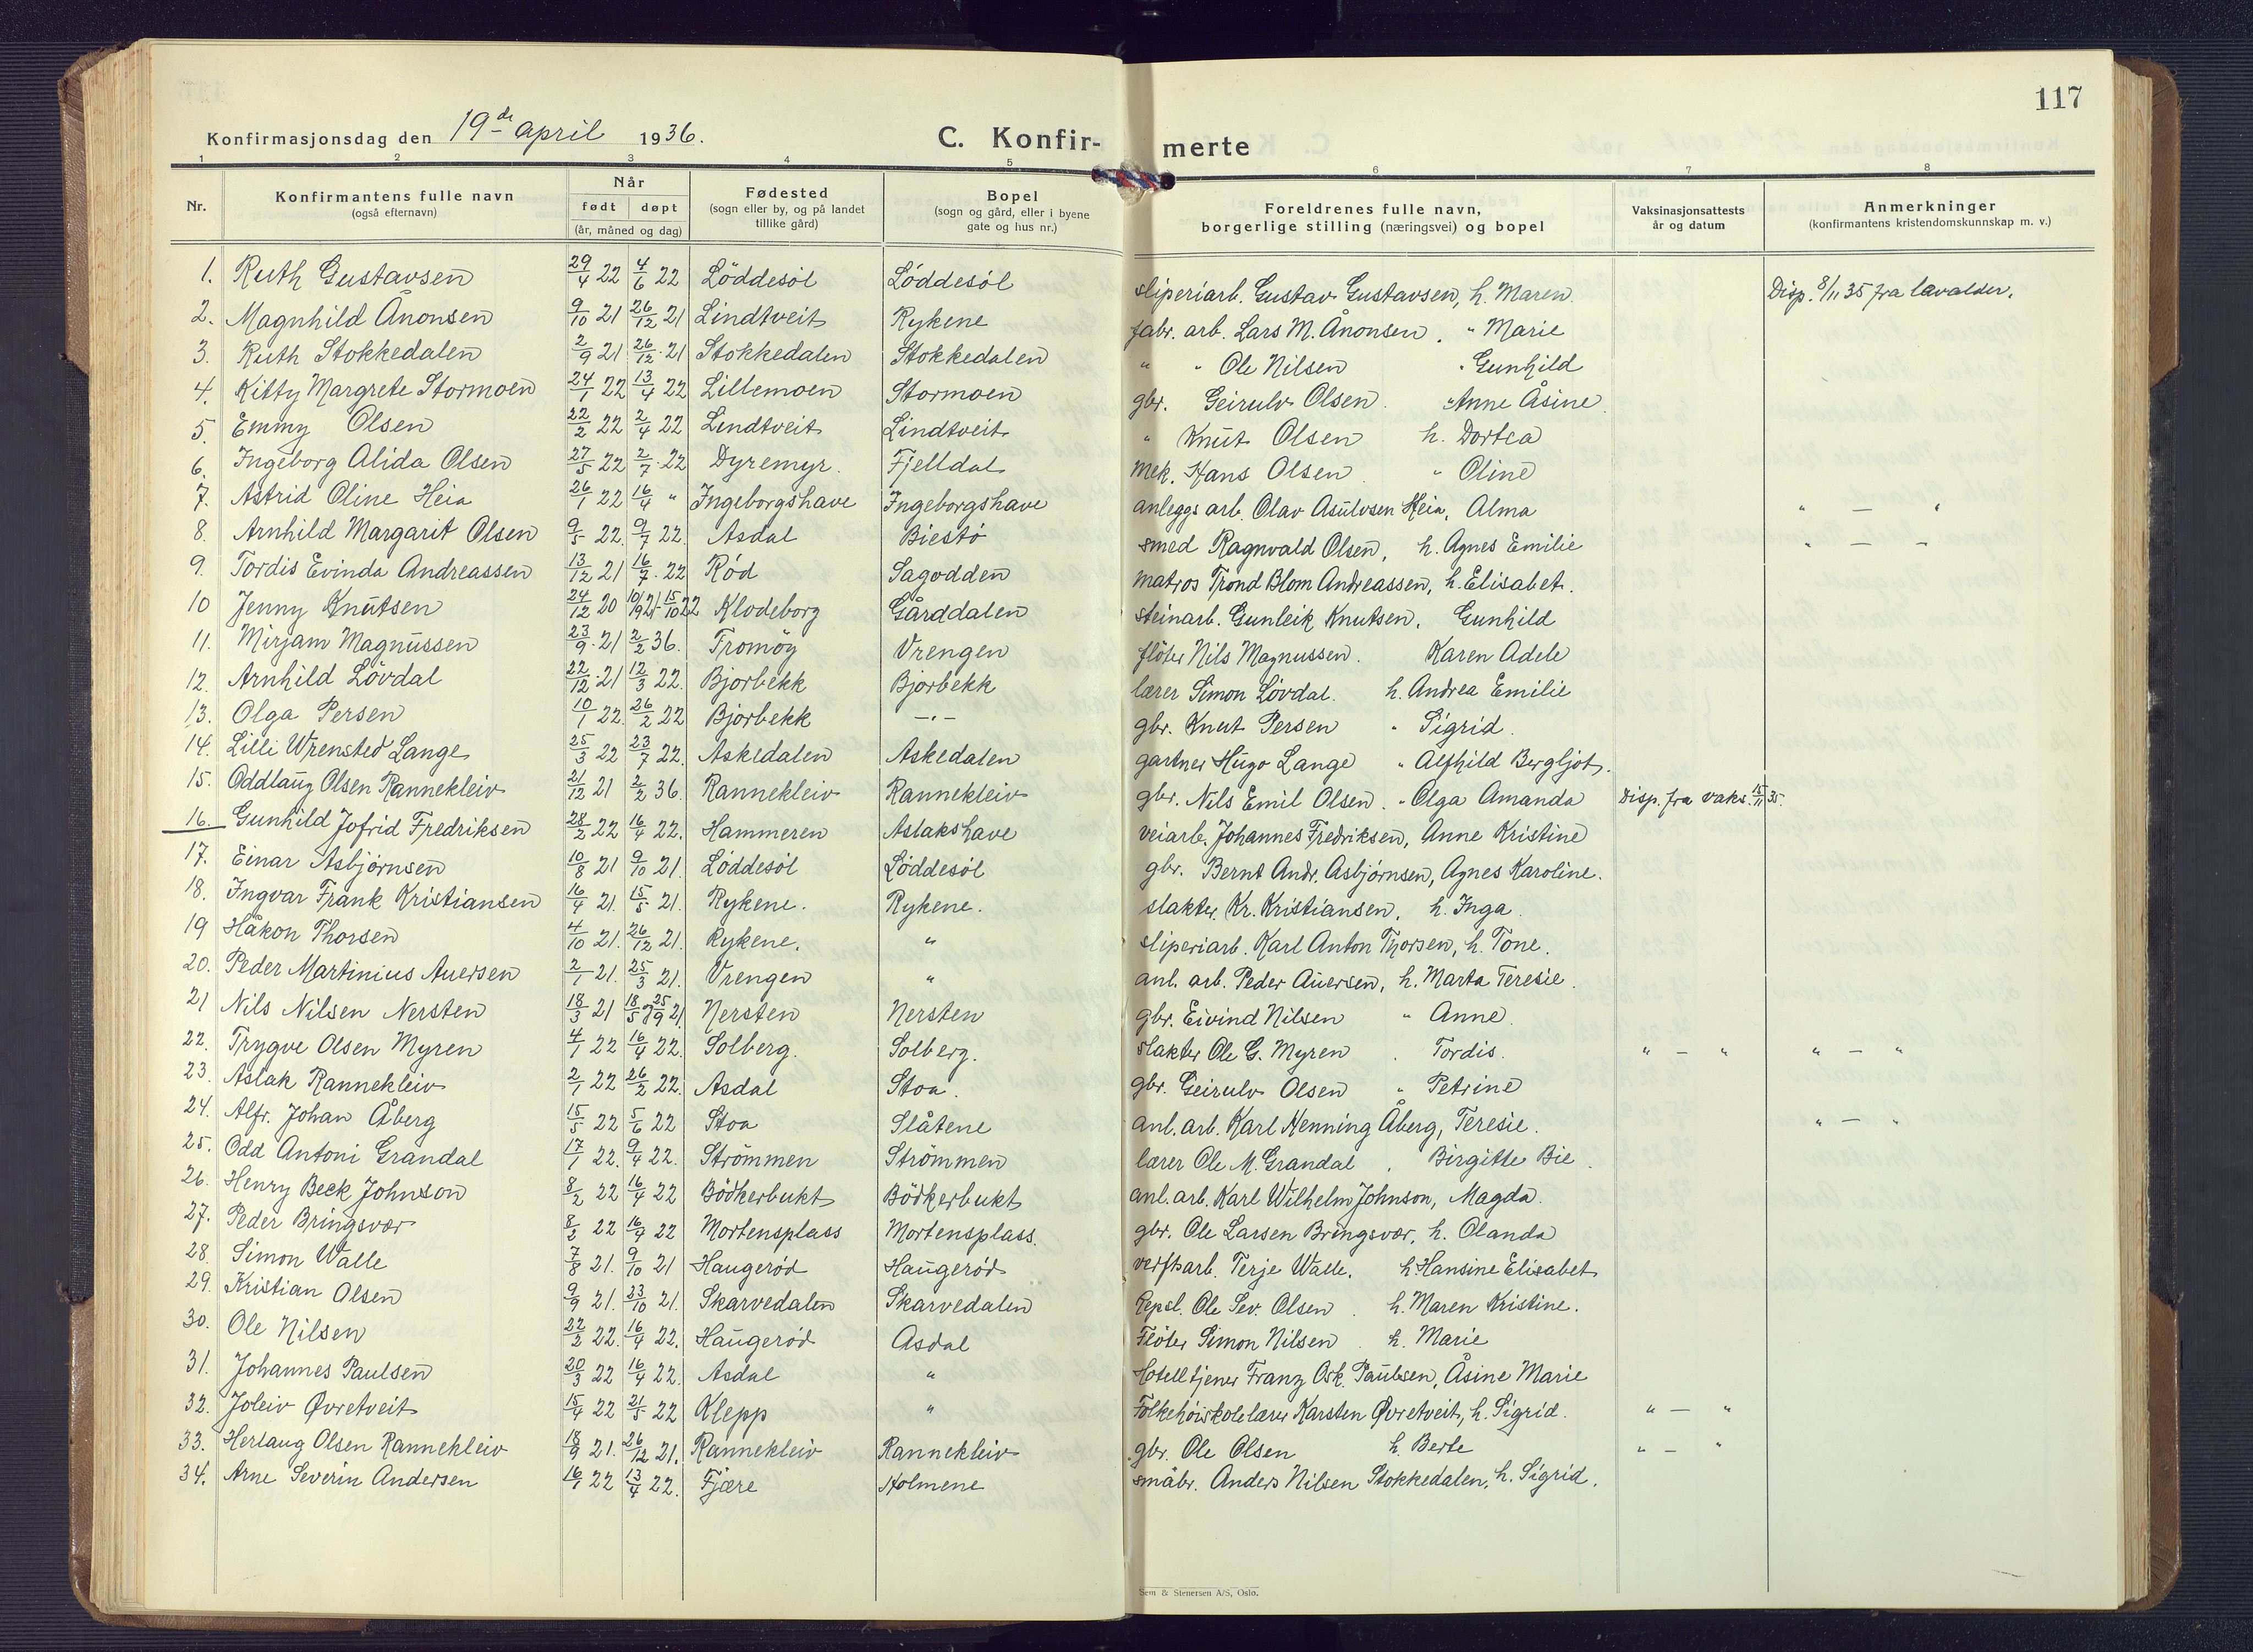 117
Konfirmasjonsdag den 19de april 1936.
C. Konfir- merte
1 2 3 4 5 6 7 8
Nr.
Konfirmantens fulle navn
(også efternavn)
Når
født døpt
(år, måned og dag)
Fødested
(sogn eller by, og på landet
tillike gård)
Bopel
(sogn og gård, eller i byene
gate og hus nr.)
Foreldrenes fulle navn,
borgerlige stilling (næringsvei) og bopel
Vaksinasjonsattests
år og datum
Anmerkninger
(konfirmantens kristendomskunnskap m. v.)
1. Ruth Gustavsen 29/4 22 4/6 22 Løddesøl Løddesøl sliperiarb. Gustav Gustavsen, h. Maren. Disp. 8/11 35 fra lavalder.
2. Magnhild Ånonsen 9/10 21 26/12 21 Lindtveit Rykene fabr. arb. Lars M. Ånonsen, " Marie
3. Ruth Stokkedalen 2/9 21 26/12 21 Stokkedalen Stokkedalen " " Ole Nilsen " Gunhild
4. Kitty Margrete Stormoen 24/1 22 13/4 22 Lillemoen Stormoen gbr. Geirulv Olsen. " Anne Åsine.
5. Emmy Olsen 22/2 22 2/4 22 Lindtveit Lindtveit " Knut Olsen h. Dortea
6. Ingeborg Alida Olsen 27/5 22 2/7 22 Dyremyr. Fjelldal mek. Hans Olsen " Oline
7. Astrid Oline Heia 26/1 22 16/4 " Ingeborgshave Ingeborgshave anleggs arb. Olav Asulvsen Heia, Alma " — "
8. Arnhild Margarit Olsen 9/5 22. 9/7 22. Asdal Biestø smed Ragnvald Olsen, h. Agnes Emilie " — "
9. Tordis Evinda Andreassen 13/12 21 16/7 22 Rød Sagodden matros Trond Blom Andreassen, h. Elisabet.
10 Jenny Knutsen 24/12 20 10/19 21 15/10 22 Klodeborg Gårddalen steinarb. Gunleik Knutsen, Gunhild
11. Mirjam Magnussen 23/9 21 2/2 36. Tromøy Vrengen fløter Nils Magnussen. Karen Adele
12. Arnhild Løvdal 22/12 21 12/3 22. Bjorbekk Bjorbekk lærer Simon Løvdal. h. Andrea Emilie
13. Olga Persen 10/1 22. 26/2 22 Bjorbekk —"— gbr. Knut Persen " Sigrid.
14. Lilli Wrensted Lange 25/3 22 23/7 22. Askedalen Askedalen gartner Hugo Lange " Alfhild Bergljot.
15. Oddlaug Olsen Rannekleiv 21/12 21 2/2 36. Rannekleiv Rannekleiv gbr. Nils Emil Olsen. " Olga Amanda Disp. fra vaks. 15/11 35.
16. Gunhild Jofrid Fredriksen 28/2 22 16/4 22. Hammeren Aslakshave veiarb. Johannes Fredriksen, Anne Kristine
17. Einar Asbjørnsen 10/8 21 9/10 21. Løddesøl Løddesøl gbr. Bernt Andr. Asbjørnsen, Agnes Karoline.
18. Ingvar Frank Kristiansen 16/4 21. 15/5 21. Rykene. Rykene. slakter Kr. Kristiansen, h. Inga.
19 Håkon Thorsen 4/10 21. 26/12 21. Rykene. " sliperiarb. Karl Anton Thorsen, h. Tone.
20. Peder Martinius Auersen 2/1 21. 25/3 21. Vrengen " anl. arb. Peder Auersen, h. Marta Teresie.
21 Nils Nilsen Nersten 18/3 21 18/5 og 25/9 21. Nersten Nersten gbr. Eivind Nilsen " Anne.
22. Trygve Olsen Myren 4/1 22 16/4 22. Solberg. Solberg. slakter Ole G. Myren . Tordis. " — " " — "
23. Aslak Rannekleiv 2/1 22 26/2 22. Asdal Stoa. gbr. Geirulv Olsen " Petrine
24. Alfr. Johan Åberg 15/5 22 5/6 22 Stoa Slåtene anl. arb. Karl Henning Åberg, Teresie. " — "
25. Odd Antoni Grandal 17/1 22. 9/4 22. Strømmen Strømmen lærer Ole M. Grandal , Birgitte Bie.
26. Henry Beck Johnson 8/2 22 16/4 22 Bødkerbukt Bødkerbukt anl. arb. Karl Wilhelm Johnson, Magda.
27. Peder Bringsvær 8/2 22 16/4 22 Mortensplass Mortensplass. gbr. Ole Larsen Bringsvær, h. Olanda
28. Simon Walle 7/8 21. 9/10 21 Haugerød Haugerød verftsarb. Terje Walle, h. Hansine Elisabet
29. Kristian Olsen 9/9 21. 23/10 21. Skarvedalen Skarvedalen Repsl. Ole Sev. Olsen . h. Maren Kristine.
30. Ole Nilsen 22/2 22. 16/4 22. Haugerød Asdal Fløter Simon Nilsen . h. Marie
31. Johannes Paulsen 20/3 22 16/4 22. Asdal " Hotelltjener Franz Osk. Paulsen, Åsine Marie
32. Joleiv Øvretveit 15/4 22 21/5 22 Klepp " Folkehøiskolelærer Karsten Øvretveit, h. Sigrid. " — "
33. Herlaug Olsen Rannekleiv 18/9 21. 26/12 21. Rannekleiv Rannekleiv gbr. Ole Olsen h. Berte " — "
34. Arne Severin Andersen 16/1 22 13/4 22. Fjære Holmene småbr. Anders Nilsen Stokkedalen, h. Sigrid.
Sem & Stenersen A/S, Oslo.